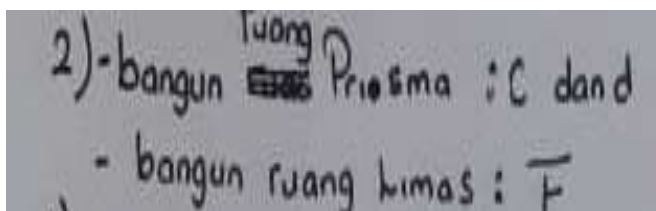 2) - bangun ruang Priosma : C dan d
- bangun ruang Limas : F